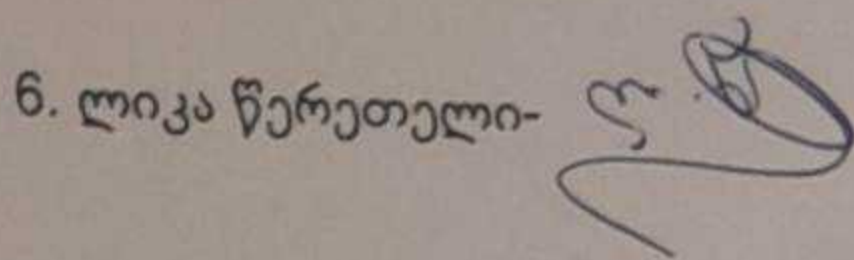 6. ლიკა წერეთელი- ლ.წ